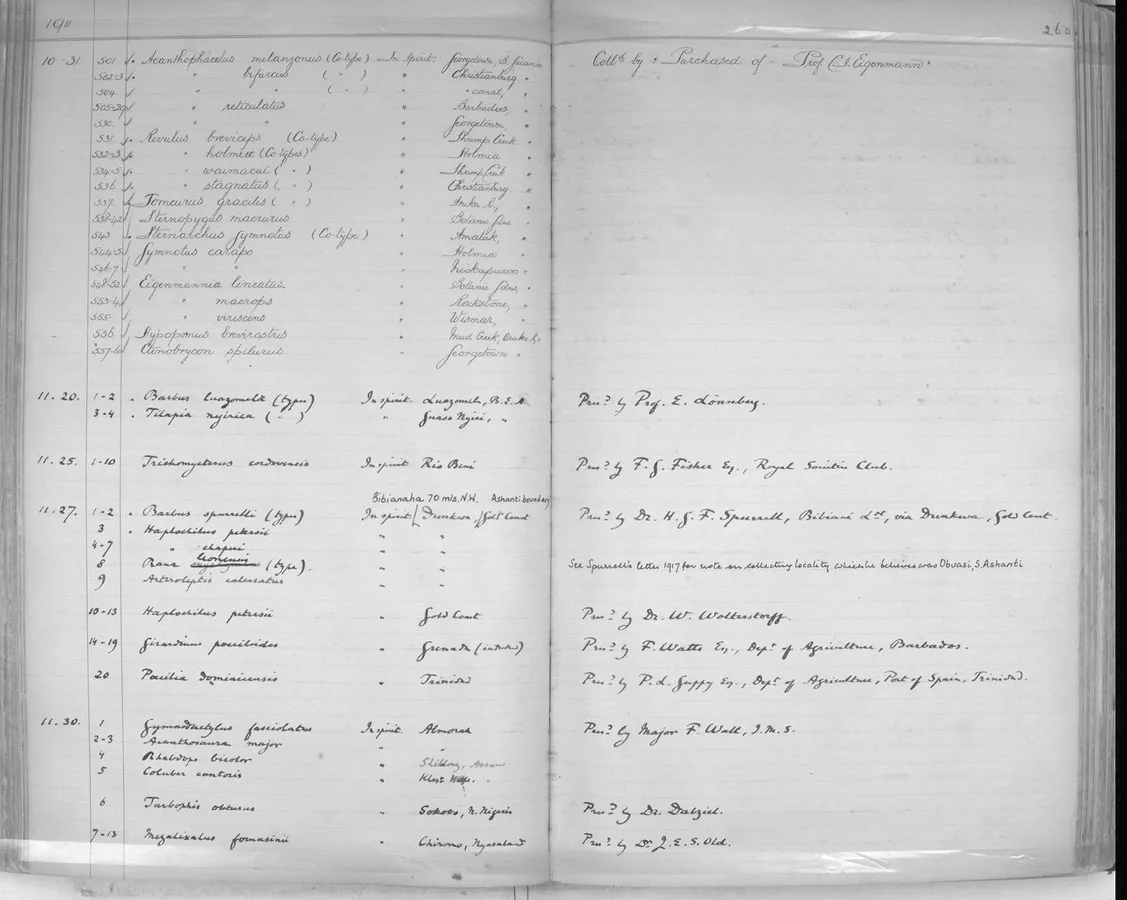 1911
260
10-31 501 Acanthophacelus melanzonus (Co-type) In Spirit. Georgetown, B. Guiana Colltd by & Purchased of Prof. C. H. Eigenmann.
502-3 " bifurcus ( " ) " Christianburg "
504 " " ( " ) " " canal, "
505-29 " reticulatus " Barbados, "
530 " " " Georgetown, "
531 Rivulus breviceps (Co-type) " Shrimp Creek "
532-3 " holmiæ (Co-types) " Holmia "
534-5 " waimacui ( " ) " Shrimp Creek "
536 " stagnatus ( " ) " Christianburg "
537 Tomeurus gracilis ( " ) "
538-42 Sternopygus macrurus " Botanic Gdns. "
543 Sternarchus Gymnotus (Co-type) " Amatuk, "
544-5 Gymnotus carapo " Holmia "
546-7 " " "
548-52 Eigenmannia lineatus " Botanic Gdns, "
553-4 " macrops " Rockstone, "
555 " virescens " Wismar, "
556 Hypopomus brevirostris " Mud Creek,
557-60 Ctenobrycon spilurus " Georgetown "
11.20. 1-2 Barbus luazomela (types) In spirit. Luazomela, B.E.A. Presd by Prof. E. Lönnberg.
3-4 Tilapia nyirica ( " ) " Guaso Nyiri, "
11.25. 1-10 Trichomycterus cordovensis In spirit Rio Beni Presd by F. G. Fisher Esq., Royal Societies Club.
Bibianaha 70 mls. N.W. Ashanti boundary
11.27. 1-2 Barbus spurrelli (types) In spirit [Dunkwa,] Gold Coast Presd by Dr. H. G. F. Spurrell, Bibiani Ltd, via Dunkwa, Gold Coast.
3 Haplochilus petersii " "
4-7 " chaperi " "
8 Rana (type). " " See Spurrell's letter 1917 for note on collecting locality which he believes was Obuasi, S. Ashanti
9 Arthroleptis calcaratus " "
10-13 Haplochilus petersii " Gold Coast Presd by Dr. W. Wolterstorff.
14-19 Girardinus poeciloides " Grenada (introd) Presd by F. Watts Esq., Dept of Agriculture, Barbados.
20 Pœcilia Dominicensis " Trinidad Presd by P. L. Guppy Esq., Dept of Agriculture, Port of Spain, Trinidad.
11.30. 1 Gymnodactylus fasciolatus In spirit. Almorah Presd by Major F. Wall, I.M.S.
2-3 Acanthosaura major " "
4 Rhabdops bicolor " Shillong, Assam
5 Coluber cantoris " Khasi Hills. "
6 Tarbophis obtusus " Sokoto, N. Nigeria Presd by Dr. Dalziel.
7-13 Megalixalus fornasinii " Chiromo, Nyasaland Presd by Dr J. E. S. Old.